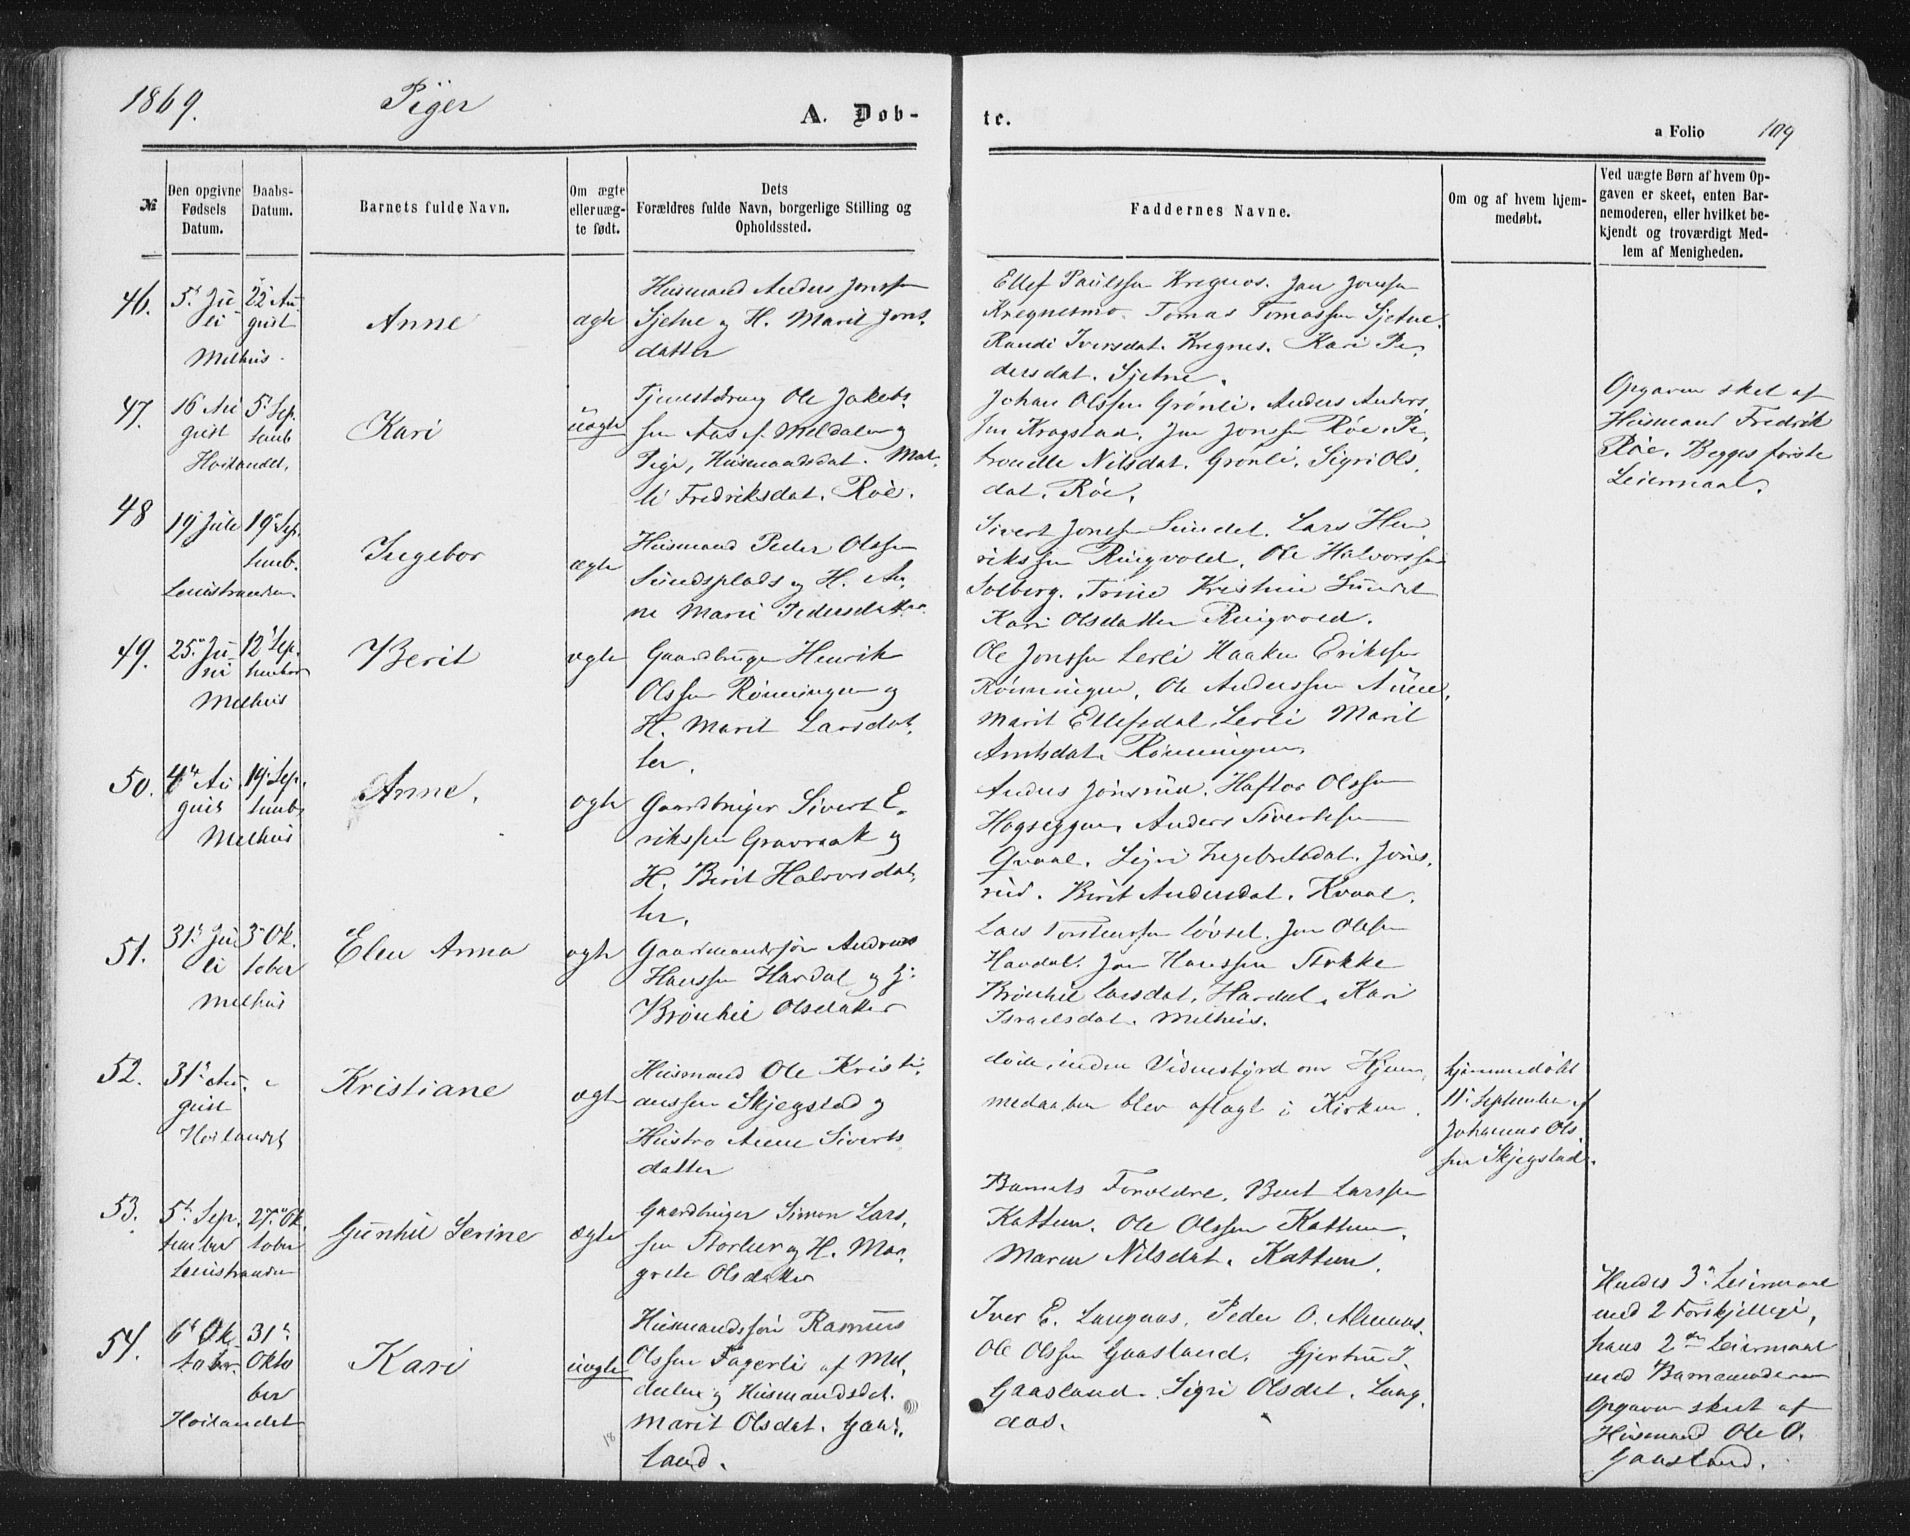 1869. Piger A. Døb-
te.
a Folio 109
№
Den opgivne Fødsels Datum.
Daabs-Datum.
Barnets fulde Navn.
Om ægte eller uæg-te født.
Dets
Forældres fulde Navn, borgerlige Stilling og
Opholdssted.
Faddernes Navne.
Om og af hvem hjem-
medøbt.
Ved uægte Børn af hvem Op-
gaven er skeet, enten Bar-
nemoderen, eller hvilket be-
kjendt og troværdigt Med-
lem af Menigheden.
46.
5t Ju
li
22 Au
gust
Melhus.
Anne
ægte
Husmand Anders Jonssen
Sjetne og H. Marit Jons
datter
Ellef Paulssen Kregnes. Jon Jonssen
Kregnesmo. Tomas Tomassen Sjetne.
Randi Iversdat. Kregnes. Kari Pe
dersdat. Sjetne.
47.
16 Au
gust
5t Sep
temb
Hoilandet.
Kari
uægte
Tjenestedreng Ole Jakobs
sen Aas f. Meldalen og
Pige, Husmandsdat. Mar
li Fredriksdat. Røe.
Johan Olssen Grønli. Anders Anders
sen Krogstad. Jon Jonssen Røe. Pe
tronelle Nilsdat. Grønli. Sigri Ols
dat. Røe.
Opgaven skeet af
Husmand Fredrik
Røe. Begges første
Leiermaal.
48
19 Juli
19 Sep
temb.
Leinstranden
Ingebor
ægte
Husmand Peder Olssen
Sundsplads og H. An
ne Marie Pedersdatter
Sivert Jonssen Sundet. Lars Hen
rikssen Ringvold. Ole Halvorssen
Solberg. Trine Kristine Sundet
Kari Olsdatter Ringvold.
49.
25. Ju
ni
12 Sep
tember
Melhus
Berit
ægte
Gaardbruger Henrik
Olssen Rønningen og
H. Marit Larsdat
ter.
Ole Jonssen Lerli Haaken Erikssen
Rønningen. Ole Anderssen Aune.
Marit Ellefsdat. Lerli Marit
Arntsdat. Rønningen.
50.
4 Au
gust
19 Sep.
temb
Melhus
Anne.
ægte
Gaardbruger Sivert E
rikssen Gravraak og
H. Berit Halvorsdat
ter.
Anders Jønsrud. Haftor Olssen
Hogseggen. Anders Sivertssen
Qvaal. Sigri Ingebretsdat. Jøns
rud. Berit Andersdat. Kvaal.
51.
31. Ju
li
3 Ok
tober
Melhus
Elen Anna
ægte
Gaardmandssøn Andreas
Hanssen Hardal og H.
Brønhil Olsdatter
Lars Torstenssen Løvset. Jon Olssen
Havdal. Jon Hanssen Stokke
Brønhil Larsdat. Hardal. Kari
Israelsdat. Melhus.
52.
31. Au.
gust
Hoilandet
Kristiane
ægte
Husmand Ole Kristi
anssen Skjegstad og
Hustro Anne Siverts
datter
døde, inden Vidnesbyrd om Hjem
medaaben blev aflagt i Kirken.
hjemmedøbt
11. September af
Johannes Ols
sen Skjegstad.
53.
5t Sep
tember
27. Ok
tober
Leinstranden
Gunhil Serine
ægte
Gaardbruger Simon Lars
sen Storler og H. Mar
grete Olsdatter
Barnets Forældre. Bert Larssen
Kattem. Ole Olssen Kattem.
Maren Nilsdat. Kattem.
54.
6 Ok
tober
31
Okto
ber
Hoilandet
Kari
uægte
Husmandssøn Rasmus
Olssen Fagerli af Mel
dalen og Husmandsdat.
Marit Olsdat. Gaas
land.
18
Iver E. Langaas. Peder O. Almaas.
Ole Olssen Gaasland. Gjertru I.
Gaasland. Sigri Olsdat. Lang
aas.
Hendes 3 Leiermaal
med 2 Forskjellige,
hans 2den Leiermaal
med Barnemoderen
Opgaven skeet af
Husmand Ole O.
Gaasland.